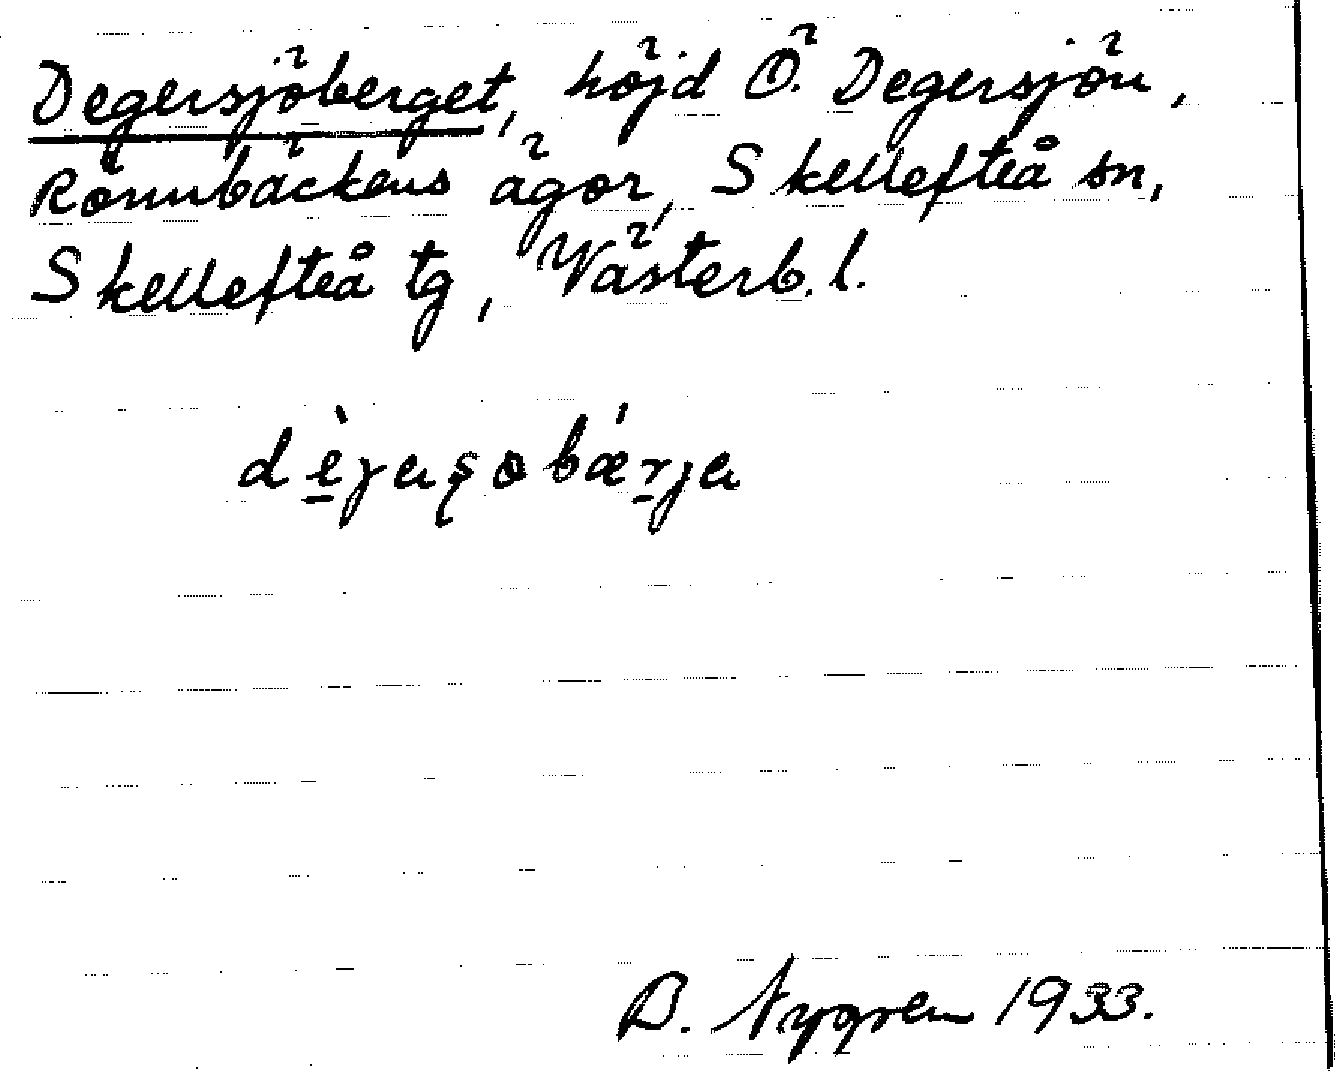 Degersjöberget, höjd Ö. Degersjön,
Rönnbäckens ägor, Skellefteå sn,
Skellefteå tg, Västerb. l.
dè̱jaʂobǽṟja
B. Nygren 1933.